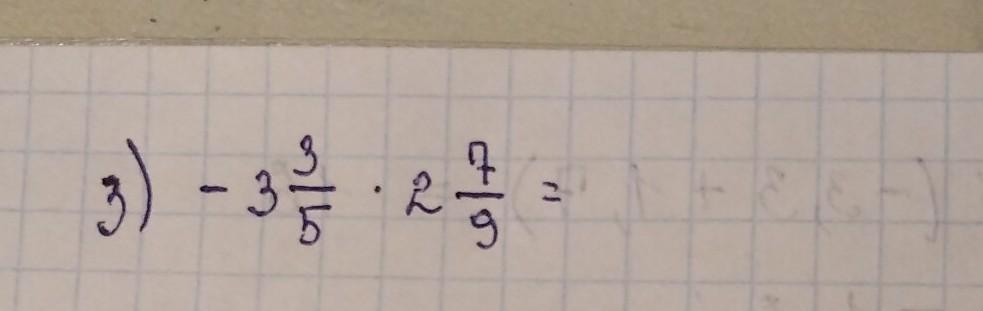 3) - 3 3/5 · 2 7/9 =